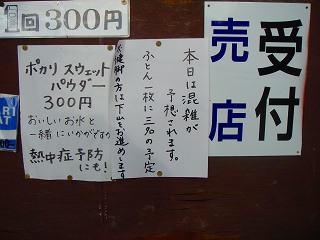 1回300円
ポカリスウェット
パウダー
300円
おいしいお水と
一緒にいかがですか
熱中症予防
にも！
本日は混雑が
予想されます。
ふとん一枚に三名の予定
（健脚の方は下山をお進めします）
受付
売店